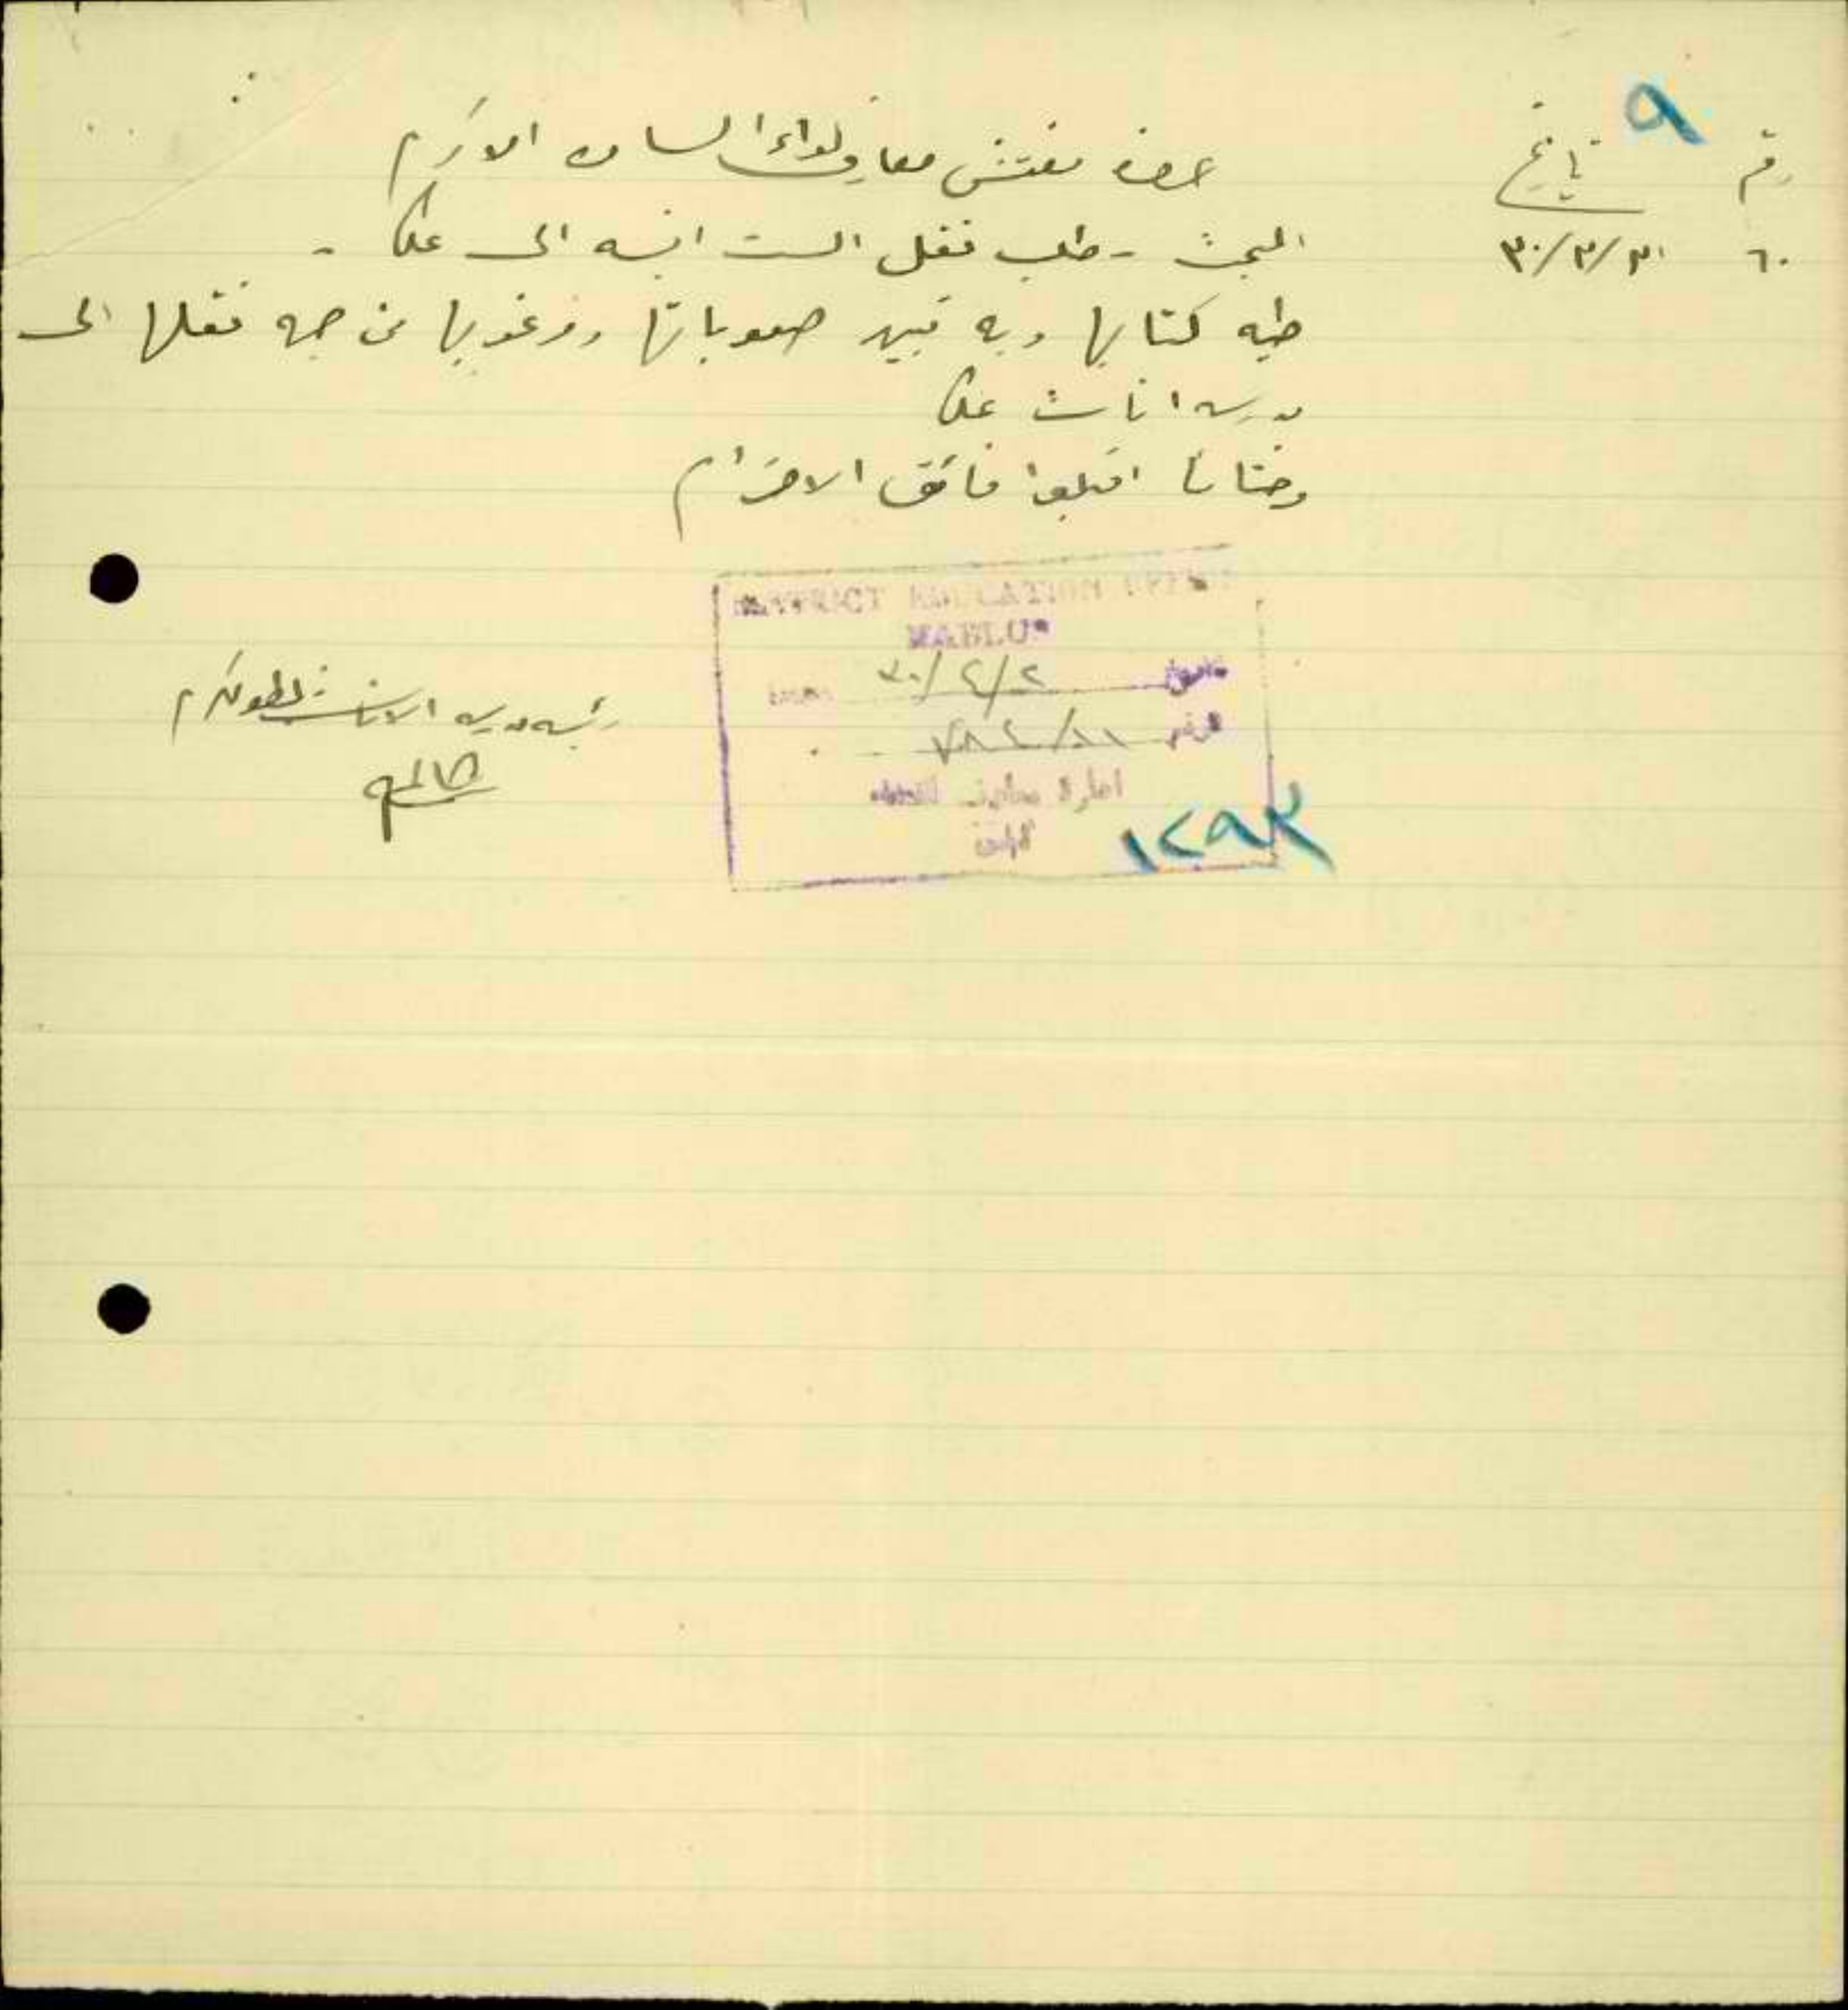 ٩
رقم تاريخ
٦٠ ٣٠/٣/٣١
حضرة مفتش معارف لواء السامره الاكرم
البحث - طلب نقل الست انيسه الى عكا -
طيه كتابها وبه تبين صعوباتها ومرغوبها من جهة نقلها الى
مدرسة اناث عكا
وختاما اقبلوا فائق الاحترام
رئيسة مدرسة الاناث بطولكرم
DISTRICT EDUCATION OFFICE
NABLUS
تاريخ ٣٠/٤/٢
الرقم ٧٨٤/١١
ادارة معارف
١٢٩٣